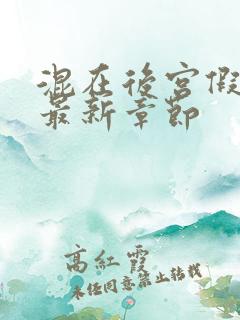 混在後宮假
最新章節
高紅霞
未經同意禁止轉載